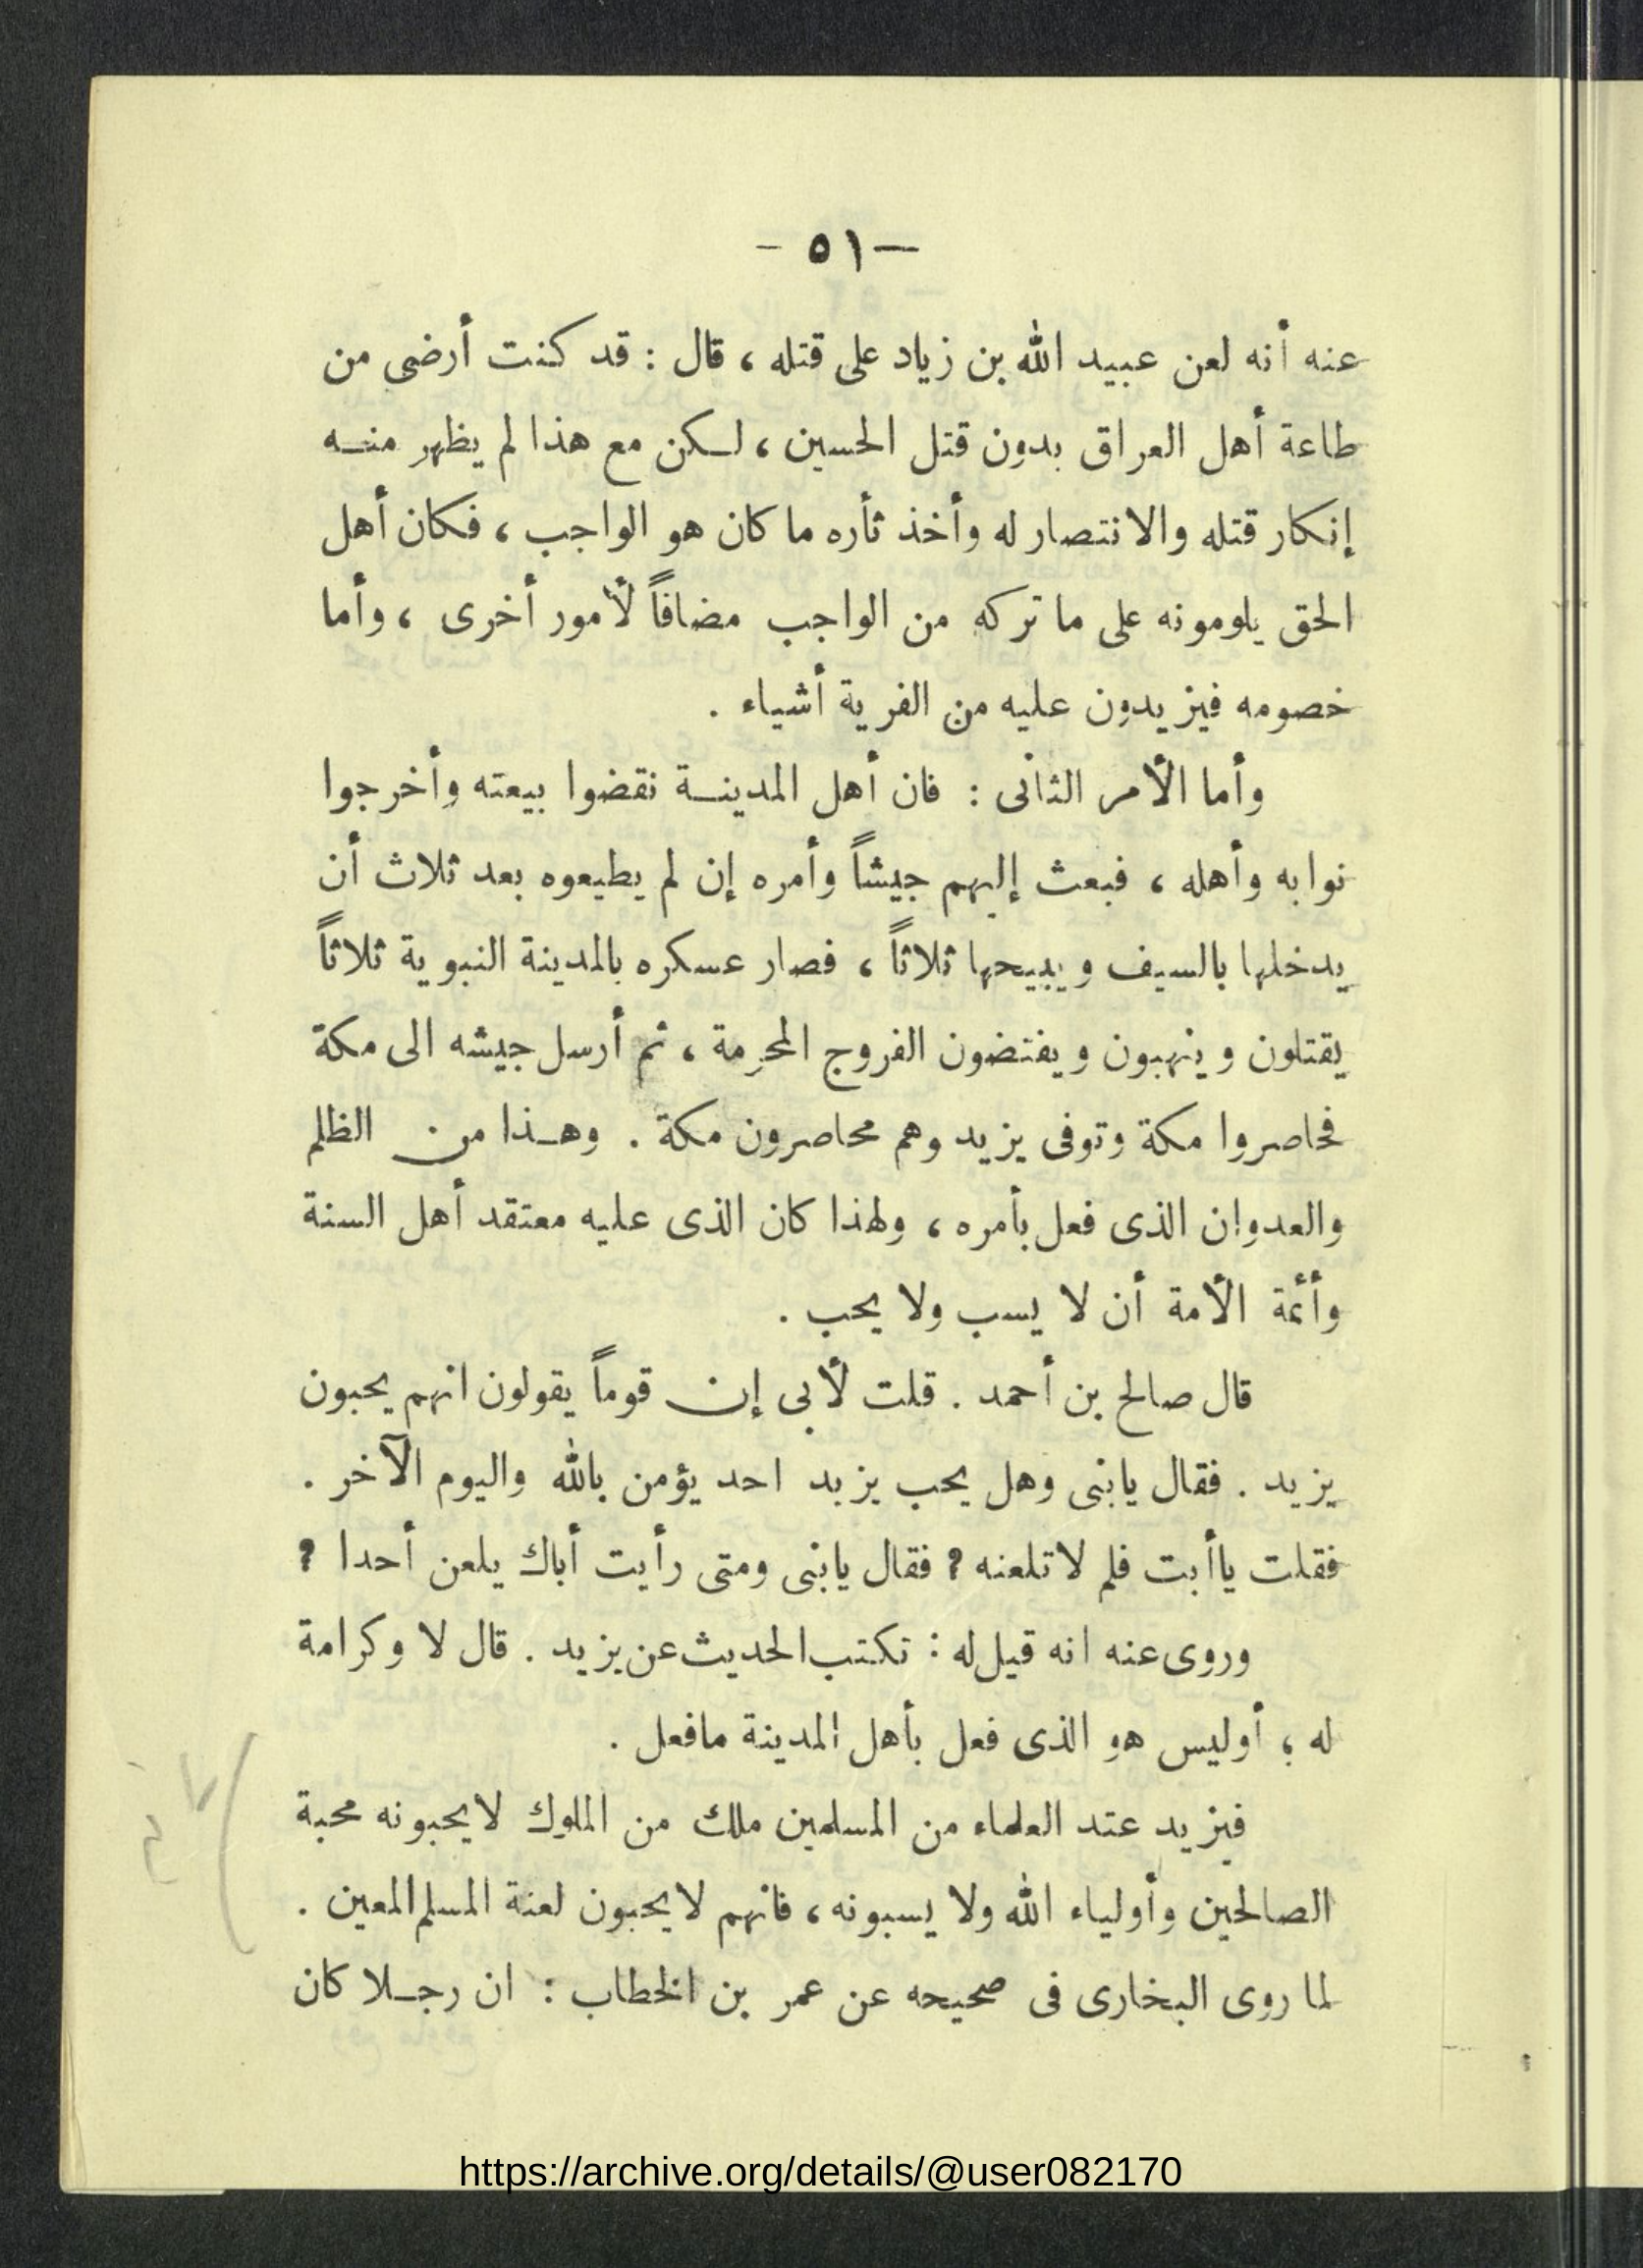 — ٥١ -
عنه أنه لعن عبيد الله بن زياد على قتله ، قال : قد كنت أرضى من
طاعة أهل العراق بدون قتل الحسين ، لـكن مع هذا لم يظهر منـه
إنكار قتله والانتصار له وأخذ ثأره ما كان هو الواجب ، فكان أهل
الحق يلومونه على ما تركه من الواجب مضافاً لأمور أخرى ، وأما
خصومه فيزيدون عليه من الفرية أشياء .
وأما الأمر الثانى : فان أهل المدينـة نقضوا بيعته وأخرجوا
نوابه وأهله ، فبعث إليهم جيشاً وأمره إن لم يطيعوه بعد ثلاث أن
يدخلها بالسيف ويبيحها ثلاثاً ، فصار عسكره بالمدينة النبوية ثلاثاً
يقتلون وينهبون ويفتضون الفروج المحرمة ، ثم أرسل جيشه الى مكة
فحاصروا مكة وتوفى يزيد وهم محاصرون مكة . وهـذا من الظلم
والعدوان الذى فعل بأمره ، ولهذا كان الذى عليه معتقد أهل السنة
وأئمة الأمة أن لا يسب ولا يحب .
قال صالح بن أحمد . قلت لأبى إن قوماً يقولون انهم يحبون
يزيد . فقال يابنى وهل يحب يزيد احد يؤمن بالله واليوم الآخر .
فقلت ياأبت فلم لاتلعنه ? فقال يابنى ومتى رأيت أباك يلعن أحدا ?
وروى عنه انه قيل له : تكتب الحديث عن يزيد . قال لا وكرامة
له ؛ أوليس هو الذى فعل بأهل المدينة مافعل .
فيزيد عتد العلماء من المسلمين ملك من الملوك لايحبونه محبة
الصالحين وأولياء الله ولا يسبونه ، فانهم لايحبون لعنة المسلم المعين .
لما روى البخارى فى صحيحه عن عمر بن الخطاب : ان رجـلا كان
https://archive.org/details/@user082170